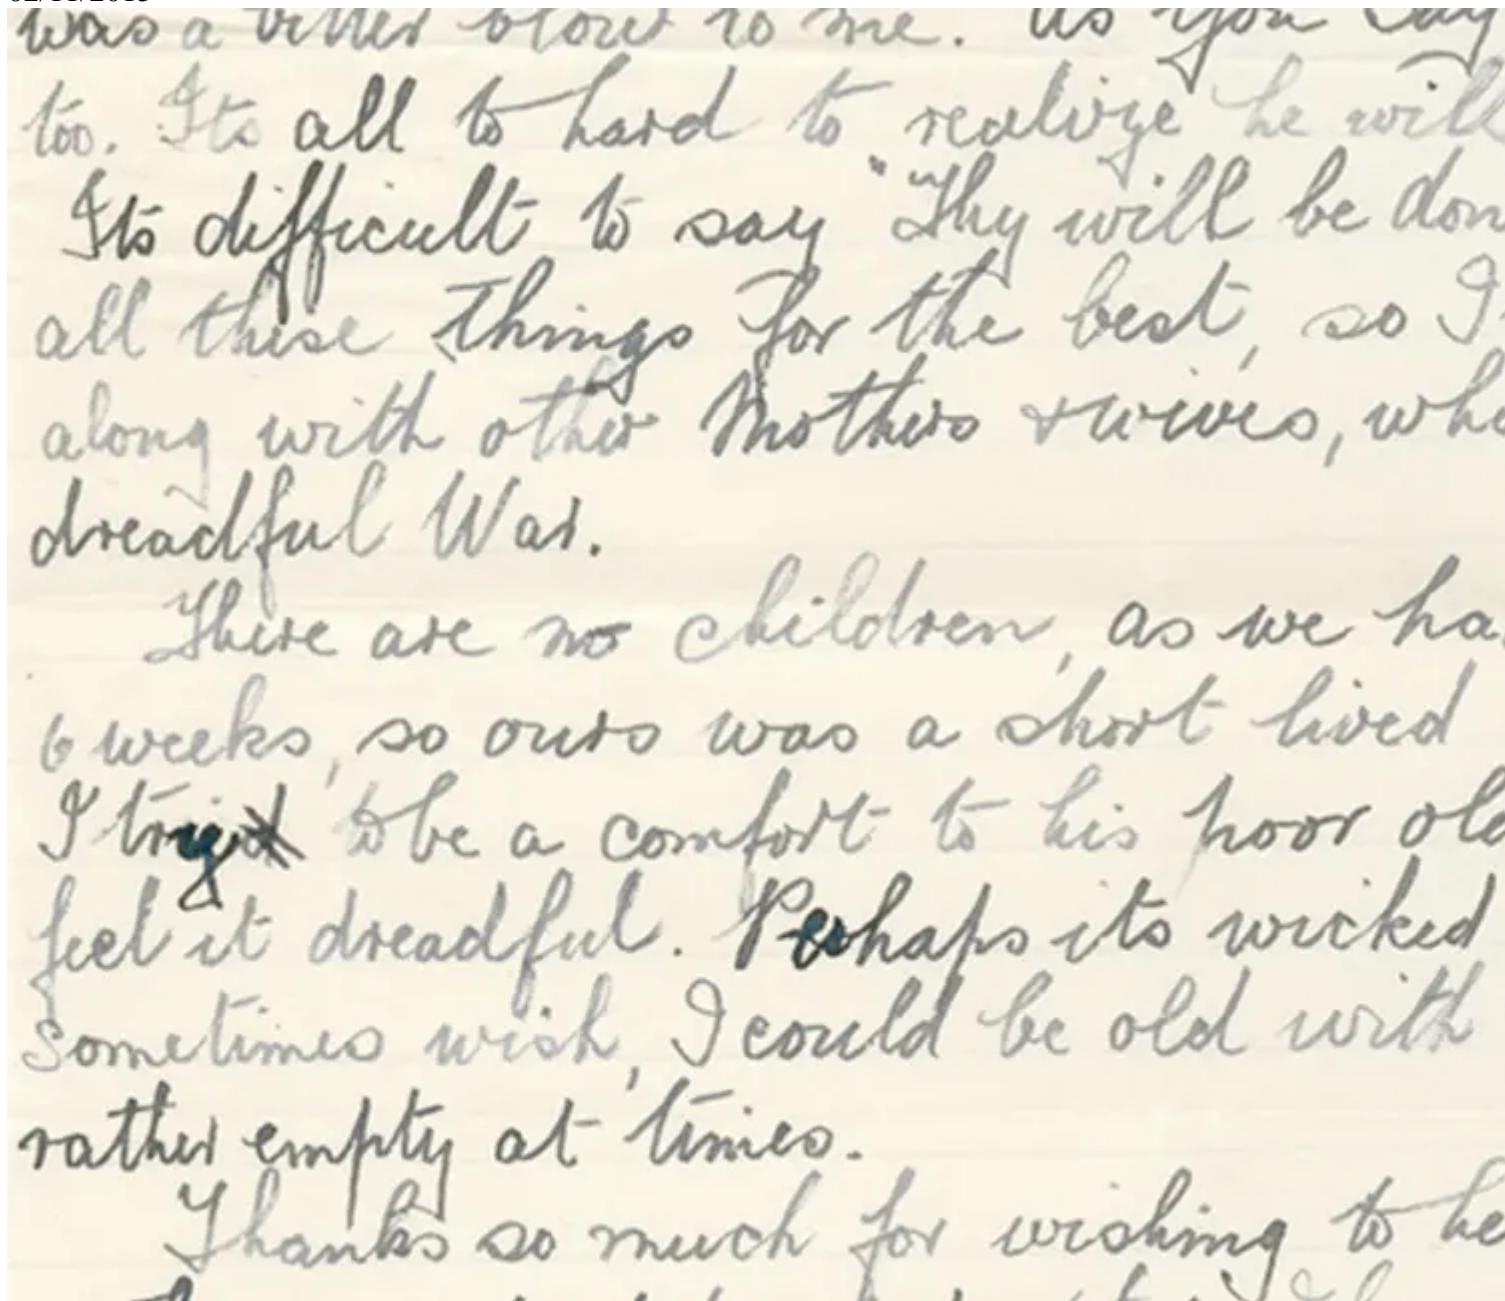 was a bitter blow to me. As you say
too. Its all to hard to realize he will
Its difficult to say "Thy will be don
all these things for the best, so I
along with other Mothers & wives, who
dreadful War.
There are no children, as we ha
6 weeks, so ours was a short lived
I try to be a comfort to his poor old
feel it dreadful. Perhaps its wicked
sometimes wish, I could be old with
rather empty at times.
Thanks so much for wishing to he